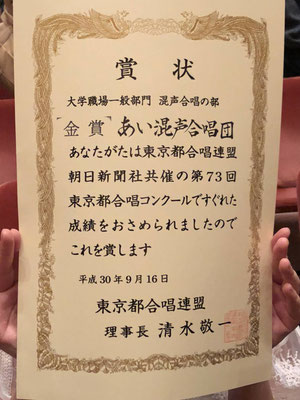 賞状
大学職場一般部門 混声合唱の部
「金賞」 あい混声合唱団
あなたがたは東京都合唱連盟
朝日新聞社共催の第73回
東京都合唱コンクールですぐれた
成績をおさめられましたので
これを賞します
平成30年9月16日
東京都合唱連盟
理事長 清水敬一